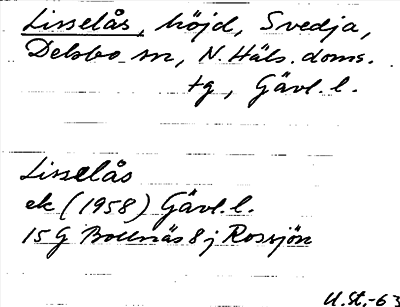 Lisselås, höjd, Svedja,
Delsbo sn, N. Häls. doms.
tg, Gävl. l.
Lisselås
ek (1958) Gävl. l.
15 G Bollnäs 8 j Rossjön
U.St.-63